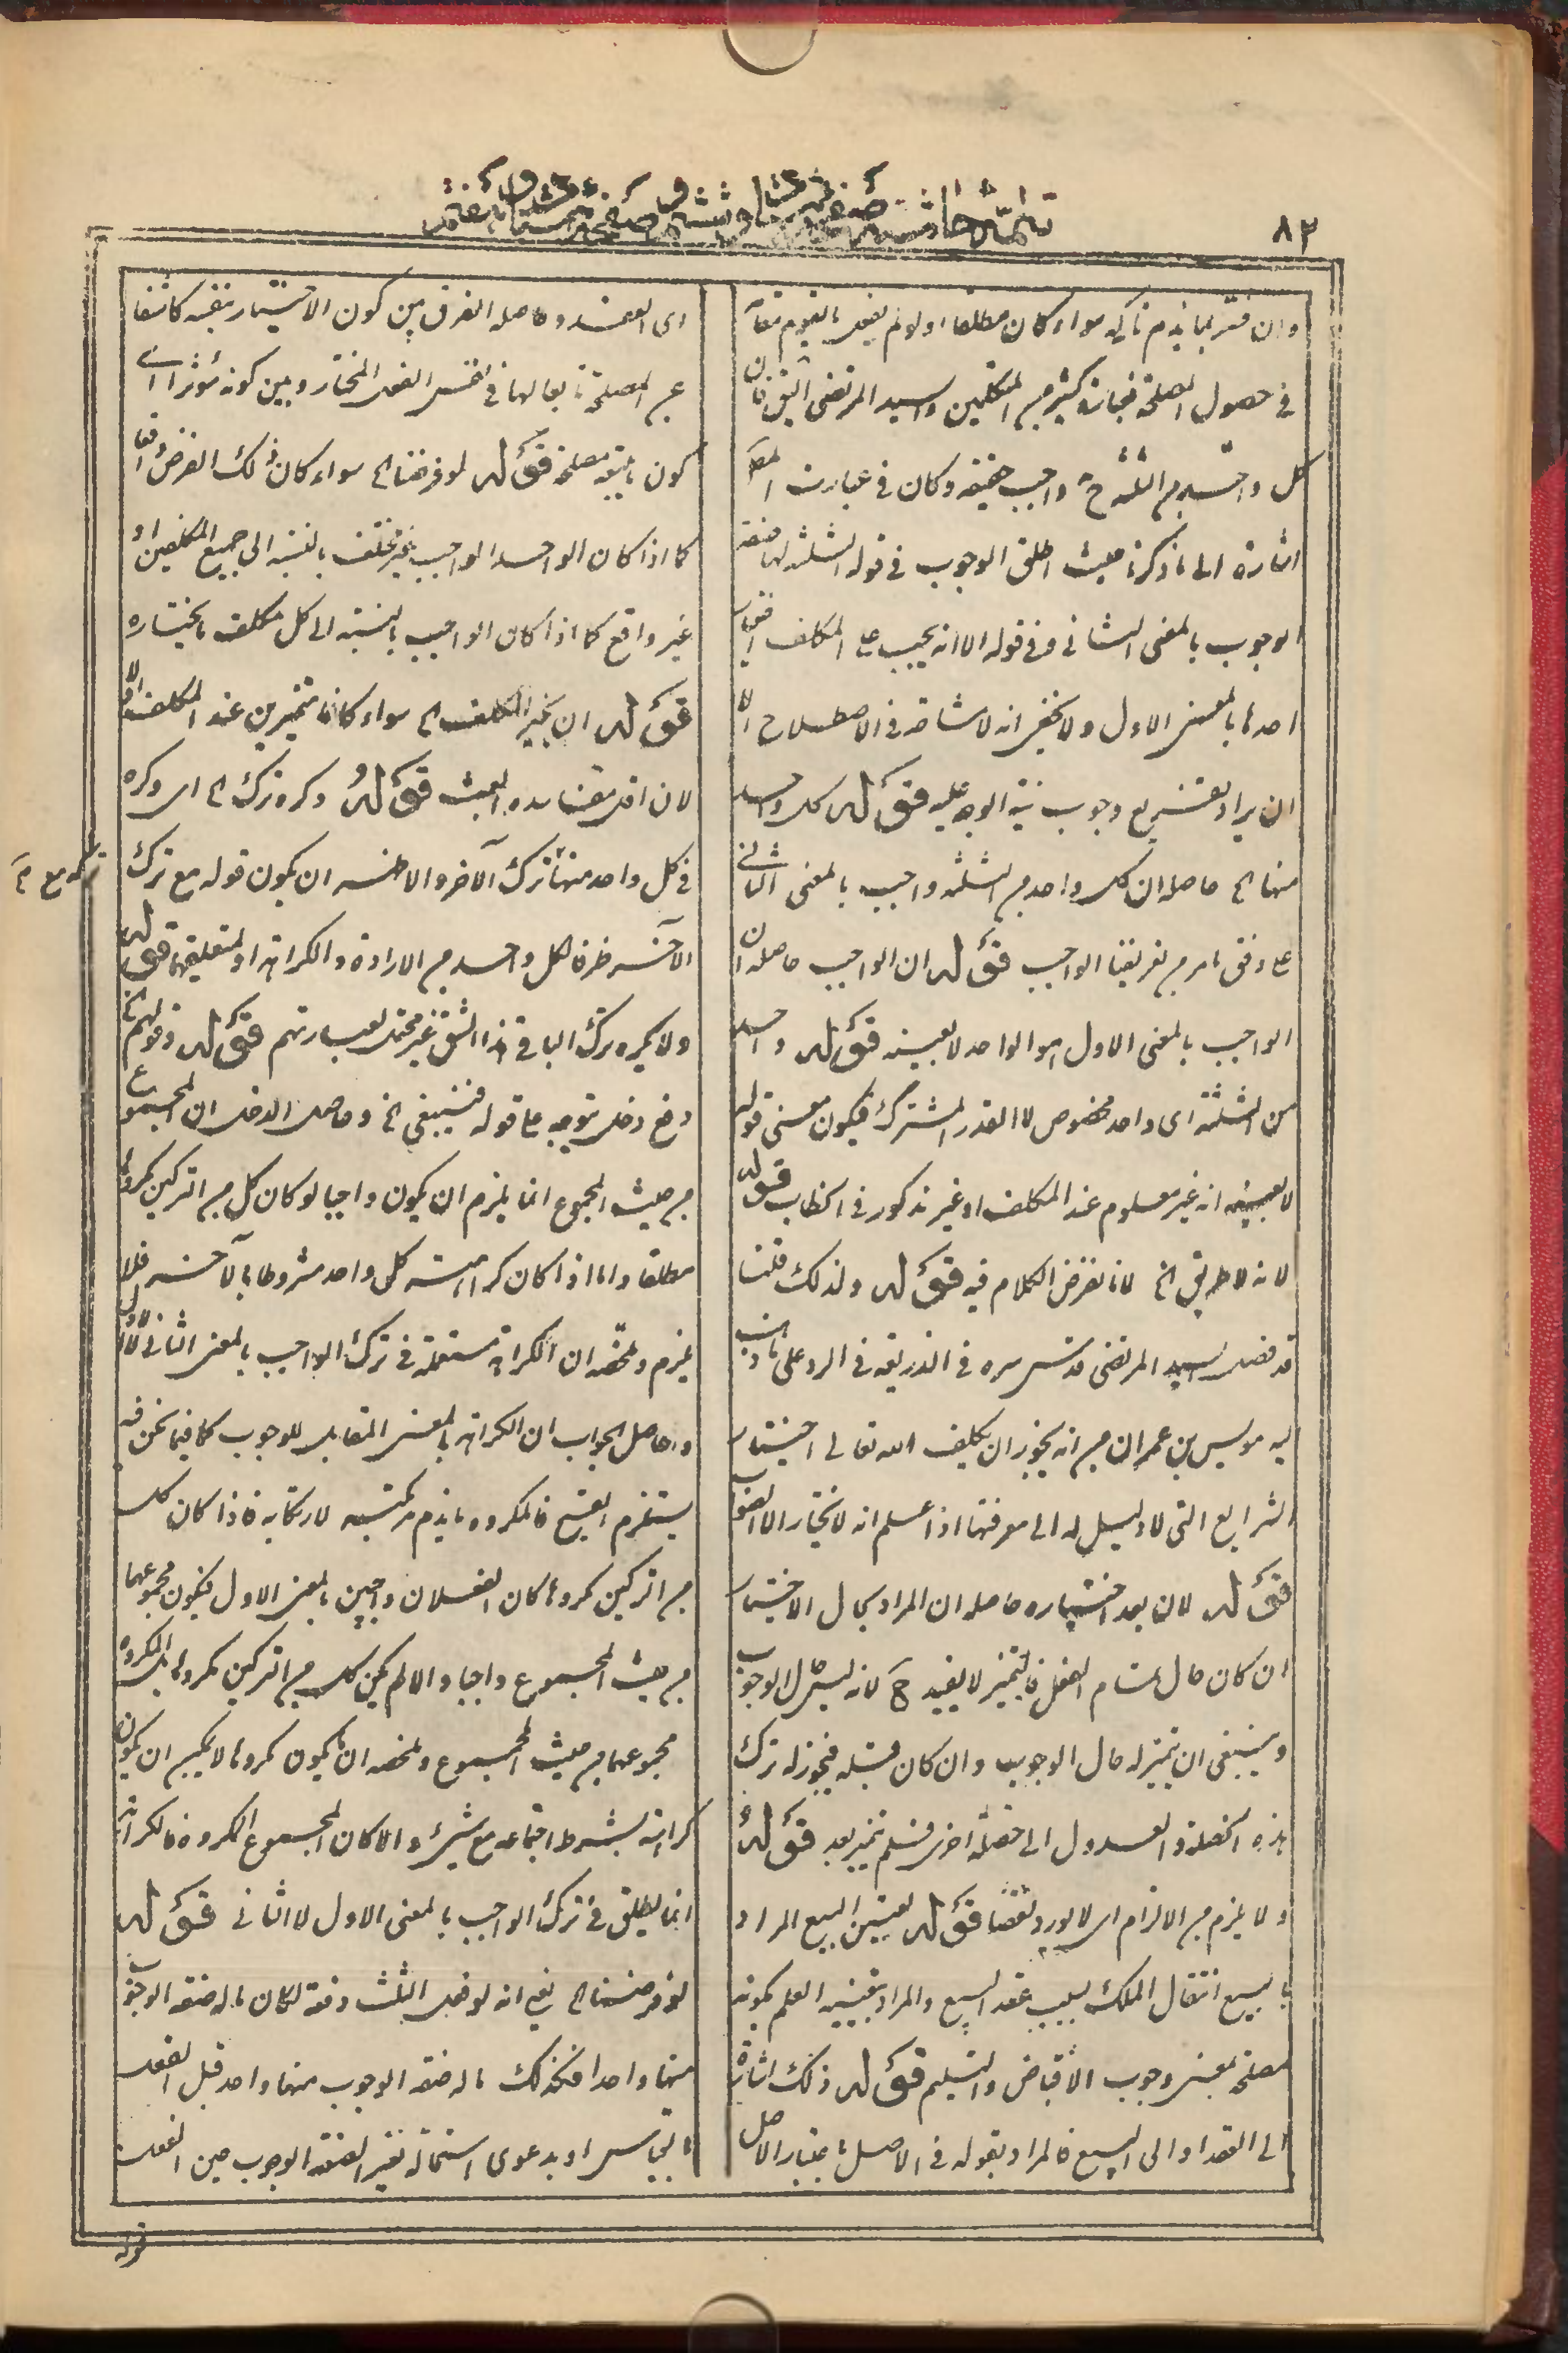 ٨٢
وان فسر بما يذم تاركه سواء كان مطلقا اولا ولم يقصد
في حصول المصلحة فعبارة كثير من المتكلمين والسيد المرتضى
كل واحد من الثلثة ح واجب حقيقة وكان في عبارت المص
اشارة الى ما ذكرنا حيث اطلق الوجوب في قوله الثلثة لها صفة
الوجوب بالمعنى الثاني وفي قوله الا انه يجب على المكلف
احدها بالمعنى الاول ولا يخفى انه لا مشاحة في الاصطلاح الا
ان يراد تفريع وجوب نية الوجه عليه قوله كل واحد
منها الخ حاصله ان كل واحد من الثلثة واجب بالمعنى الثاني
على وفق ما مر من تعريفنا الواجب قوله ان الواجب حاصله ان
الواجب بالمعنى الاول هو الواحد لا بعينه قوله واحد
من الثلثة اى واحد مخصوص لا القدر المشترك فيكون معنى قوله
لا بعينه انه غير معلوم عند المكلف او غير مذكور في الخطاب قوله
لانه لا طريق الخ لانا نفرض الكلام فيه قوله ولذلك قلنا
قد فصل السيد المرتضى قدس سره في الذريعة في الرد على ما ذهب
اليه مويس بن عمران من انه يجوز ان يكلف الله تعالى اختيار
الشرايع التى لا دليل له الى معرفتها اذا علم انه لا يختار الا الصواب
قوله لان بعد اختياره حاصله ان المراد بحال الاختيار
ان كان حال تمام الفعل فالتميز لا يفيد ح لانه ليس حال الوجوب
وينبغى ان يتميز له حال الوجوب وان كان قبله فيجوز له ترك
هذه الخصلة والعدول الى خصلة اخرى فلم يتميز بعد قوله
ولا يلزم من الالزام اى لا يورد نقضا قوله تعيين البيع المراد
بالبيع انتقال الملك بسبب عقد البيع والمراد بتعيينه العلم بكونه
مصلحة بمعنى وجوب الاقباض والتسليم قوله ذلك اشارة
الى العقد او الى البيع فالمراد بقوله في الاصل باعتبار الاصل
اى العقد وحاصله الفرق بين كون الاختيار بنفسه كاشفا
عن المصلحة تابعا لها في نفس الفعل المختار وبين كونه مؤثرا
كون ما يتبعه مصلحة قوله لو فرضنا الخ سواء كان ذلك الفرض واقعا
كما اذا كان الواحد الواجب غير مختلف بالنسبة الى جميع المكلفين او
غير واقع كما اذا كان الواجب بالنسبة الى كل مكلف ما يختاره
قوله ان يخير المكلف الخ سواء كانا متميزين عند المكلف اولا
لان قوله وكره ترك الخ اى وكره
في كل واحد منهما ترك الآخر والاظهر ان يكون قوله مع ترك
تركه مع
الآخر ظرفا لكل واحد من الارادة والكراهة او لمتعلقيهما قوله
ولا يكره ترك الباقى هذا الشق غير محتمل لعبارتهم قوله وقولهم
دفع دخل توجه على قوله فينبغي الخ وحاصل الدخل ان المجموع
من حيث المجموع انما يلزم ان يكون واجبا لو كان كل من التركين مكروها
مطلقا واما اذا كان كراهته كل واحد مشروطا بالآخر فلا
يلزم وملخصه ان الكراهة مستعملة في ترك الواجب بالمعنى الثانى لا الاول
وحاصل الجواب ان الكراهة بالمعنى المقابل للوجوب كما فيما نحن فيه
يستلزم القبح فالمكروه ما يذم مرتكبه لارتكابه فاذا كان كل
من التركين مكروها كان الفعلان واجبين بالمعنى الاول فيكون مجموعهما
من حيث المجموع واجبا والا لم يكن كل من التركين مكروها بل المكروه
مجموعهما من حيث المجموع وملخصه ان ما يكون مكروها لا يجب ان يكون
كراهته بشرط اجتماعه مع شىء والا كان المجموع المكروه فالكراهة
انما يطلق في ترك الواجب بالمعنى الاول لا الثانى قوله
لو فرضنا الخ يعنى انه لو فعل الثلث دفعة لكان ما له صفة الوجوب
منها واحدا فكذلك ما له صفة الوجوب منها واحد قبل الفعل
بالقياس او بدعوى استحالة تغير الصفة الوجوب حين الفعل
قوله